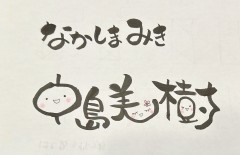 なかしまみき
中島美樹